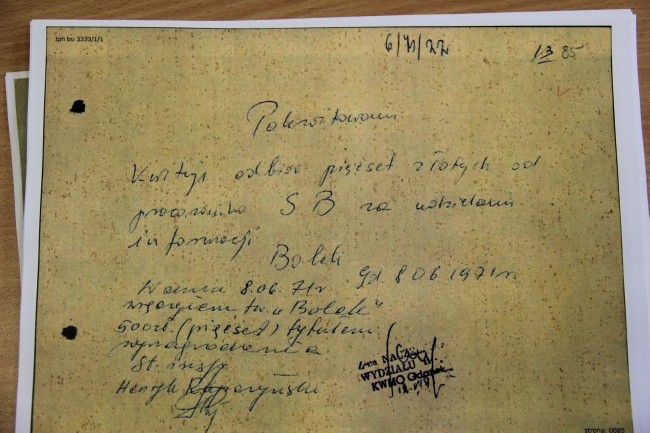 Ipn bu 3333/1/1
6/71/22
13 85
Pokwitowani
Kwituje odbior pięćset złotych od
pracownika SB za udzielani
informacji
Bolek
Gd. 8 06 1971 r
W dniu 8.06.71 r.
wręczyłem tw. "Bolek"
500 zł. (pięćset) tytułem
wynagrodzenia
St. insp.
Henryk
NACZ
WYDZIAŁU
KWMO Gdańsk
strona: 0085